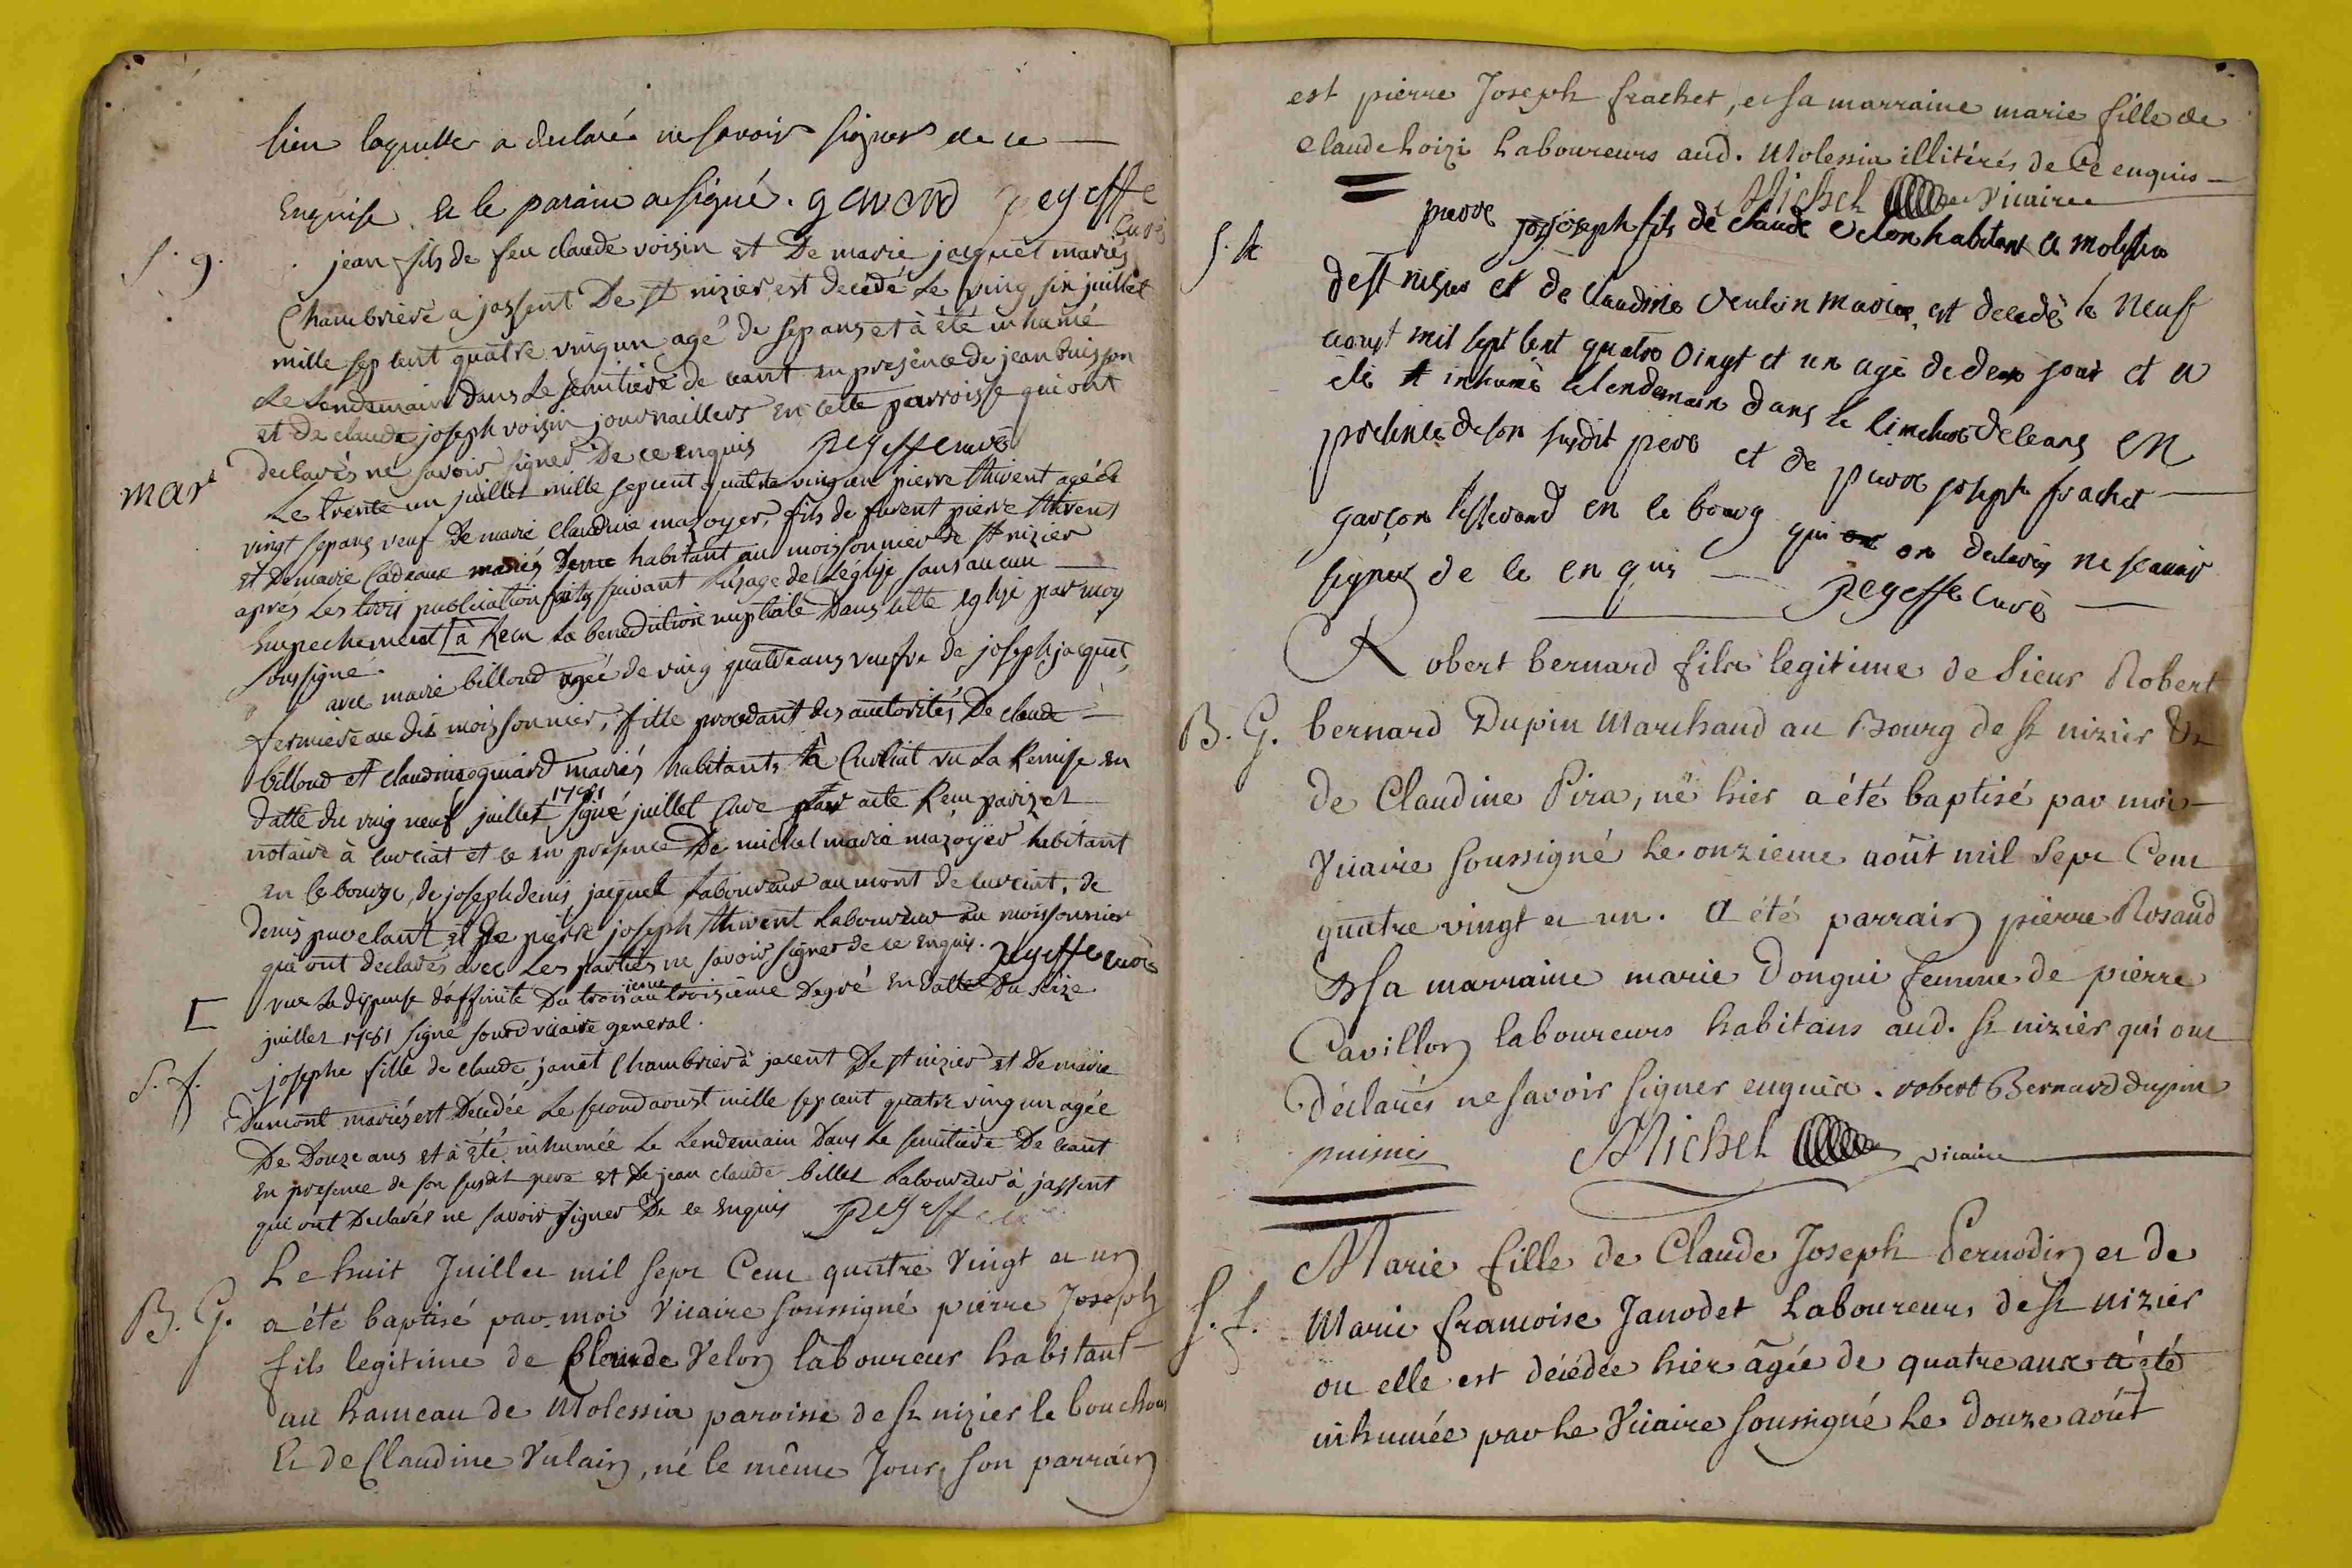 lieu laquelle a declaré ne savoir signer de ce
Enquise et le parain a signé. genand pegeffe
curé
S. g.
jean fils de feu claude voisin et De marie jacquet mariés
Chambrière a jassent De st nizier est decedé Le ving six juillet
mille sep cent quatre ving un agé de sep ans et à été inhumé
Le Lendemain dans Le semitiere de ceant en presence de jean buisson
et De claude joseph voisin journailliers en cette parroisse qui ont
declarés ne savoir signer De ce enquis pegeffe curé
mar
Le trente un juillet mille sep cent quatre ving un pierre thivent agé de
vingt sep ans veuf De marie Claudine mazoyer, fils de furent pierre thivent
et De marie Cadeaux mariés habitant au moissonnier De st nizier
après Les trois publication faites suivant l'usage de L'eglise sans aucun
Empechement [à Recu La benediction nuptiale Dans cette eglise par moy
soussigné.
avec marie billoud agée de ving quatre ans veufve de joseph jacquet,
fermiere au dit moissonnier, fille procedant des auctorités De claude
billoud et claudine guiard mariés habitants à Curciat vu La Remise en
datte du ving neuf juillet 1781 signé juillet Cure par acte Recu parizet
notaire à curciat et ce en presence De michel marie mazoyer habitant
en ce bourg, de joseph denis jacquet Laboureur au mont de curciat, de
denis puvelant et De pierre joseph thivent Laboureur au moissonnier
qui ont declarés avec Les parties ne savoir signer de ce enquis. pegeffe curé
[ vue La dispense d'affinité Du troisieme au troisieme Degré en Datte Du seize
juillet 1781 signé sourd vicaire general.
S. f.
josephe fille de claude janet Chambrier à jacent De st nizier et De marie
Dumont mariés est Décédée Le second aoust mille sep cent quatre ving un agée
De Douze ans et à été inhumée Le Lendemain Dans Le semitiere De ceant
En presence de son susdit pere et De jean claude billet Laboureur à jassent
qui ont Declarés ne savoir signer De ce enquis pegeffe curé
B. G.
Le huit Juillet mil sept Cent quatre Vingt et un
a été baptisé par moi Vicaire soussigné pierre Joseph
fils legitime de Claude Velon laboureur habitant
au hameau de Molessia paroisse de St nizier le bouchoux
Et de Claudine Vulain, né le même Jour, son parrain
est pierre Joseph frachet, et sa marraine marie fille de
Claude Loizi Laboureurs aud. Molessia illitérés de Ce enquis
Michel Vicaire
S. g.
pierre joseph fils de claude velon habitant a molessia
de st nizier et de claudine veulain maries, est decedé le neuf
aoust mil sept cent quatre vingt et un agé de deux jour et a
été inhumé le lendemain dans le simetiere de ceans en
presence de son susdit pere et de pierre joseph frachet
garçon tisserand en ce bourg qui on declarés ne scavoir
signer de ce en quis pegeffe curé
B. G.
Robert bernard fils legitime de Sieur Robert
bernard Dupin Marchand au Bourg de St nizier Et
de Claudine Pira, né hier a été baptisé par moi
Vicaire soussigné Le onzieme août mil Sept Cent
quatre vingt et un. a été parrain pierre Rosand
Et sa marraine marie Dongui femme de pierre
Cavillon laboureurs habitans aud. St nizier qui ont
déclarés ne savoir signer enquis. robert Bernard dupin
Michel vicaire
S. f.
Marie fille de Claude Joseph Pernodin et de
Marie francoise Janodet Laboureurs de St nizier
ou elle est décédée hier âgée de quatre ans a été
inhumée par Le Vicaire soussigné Le Douze août